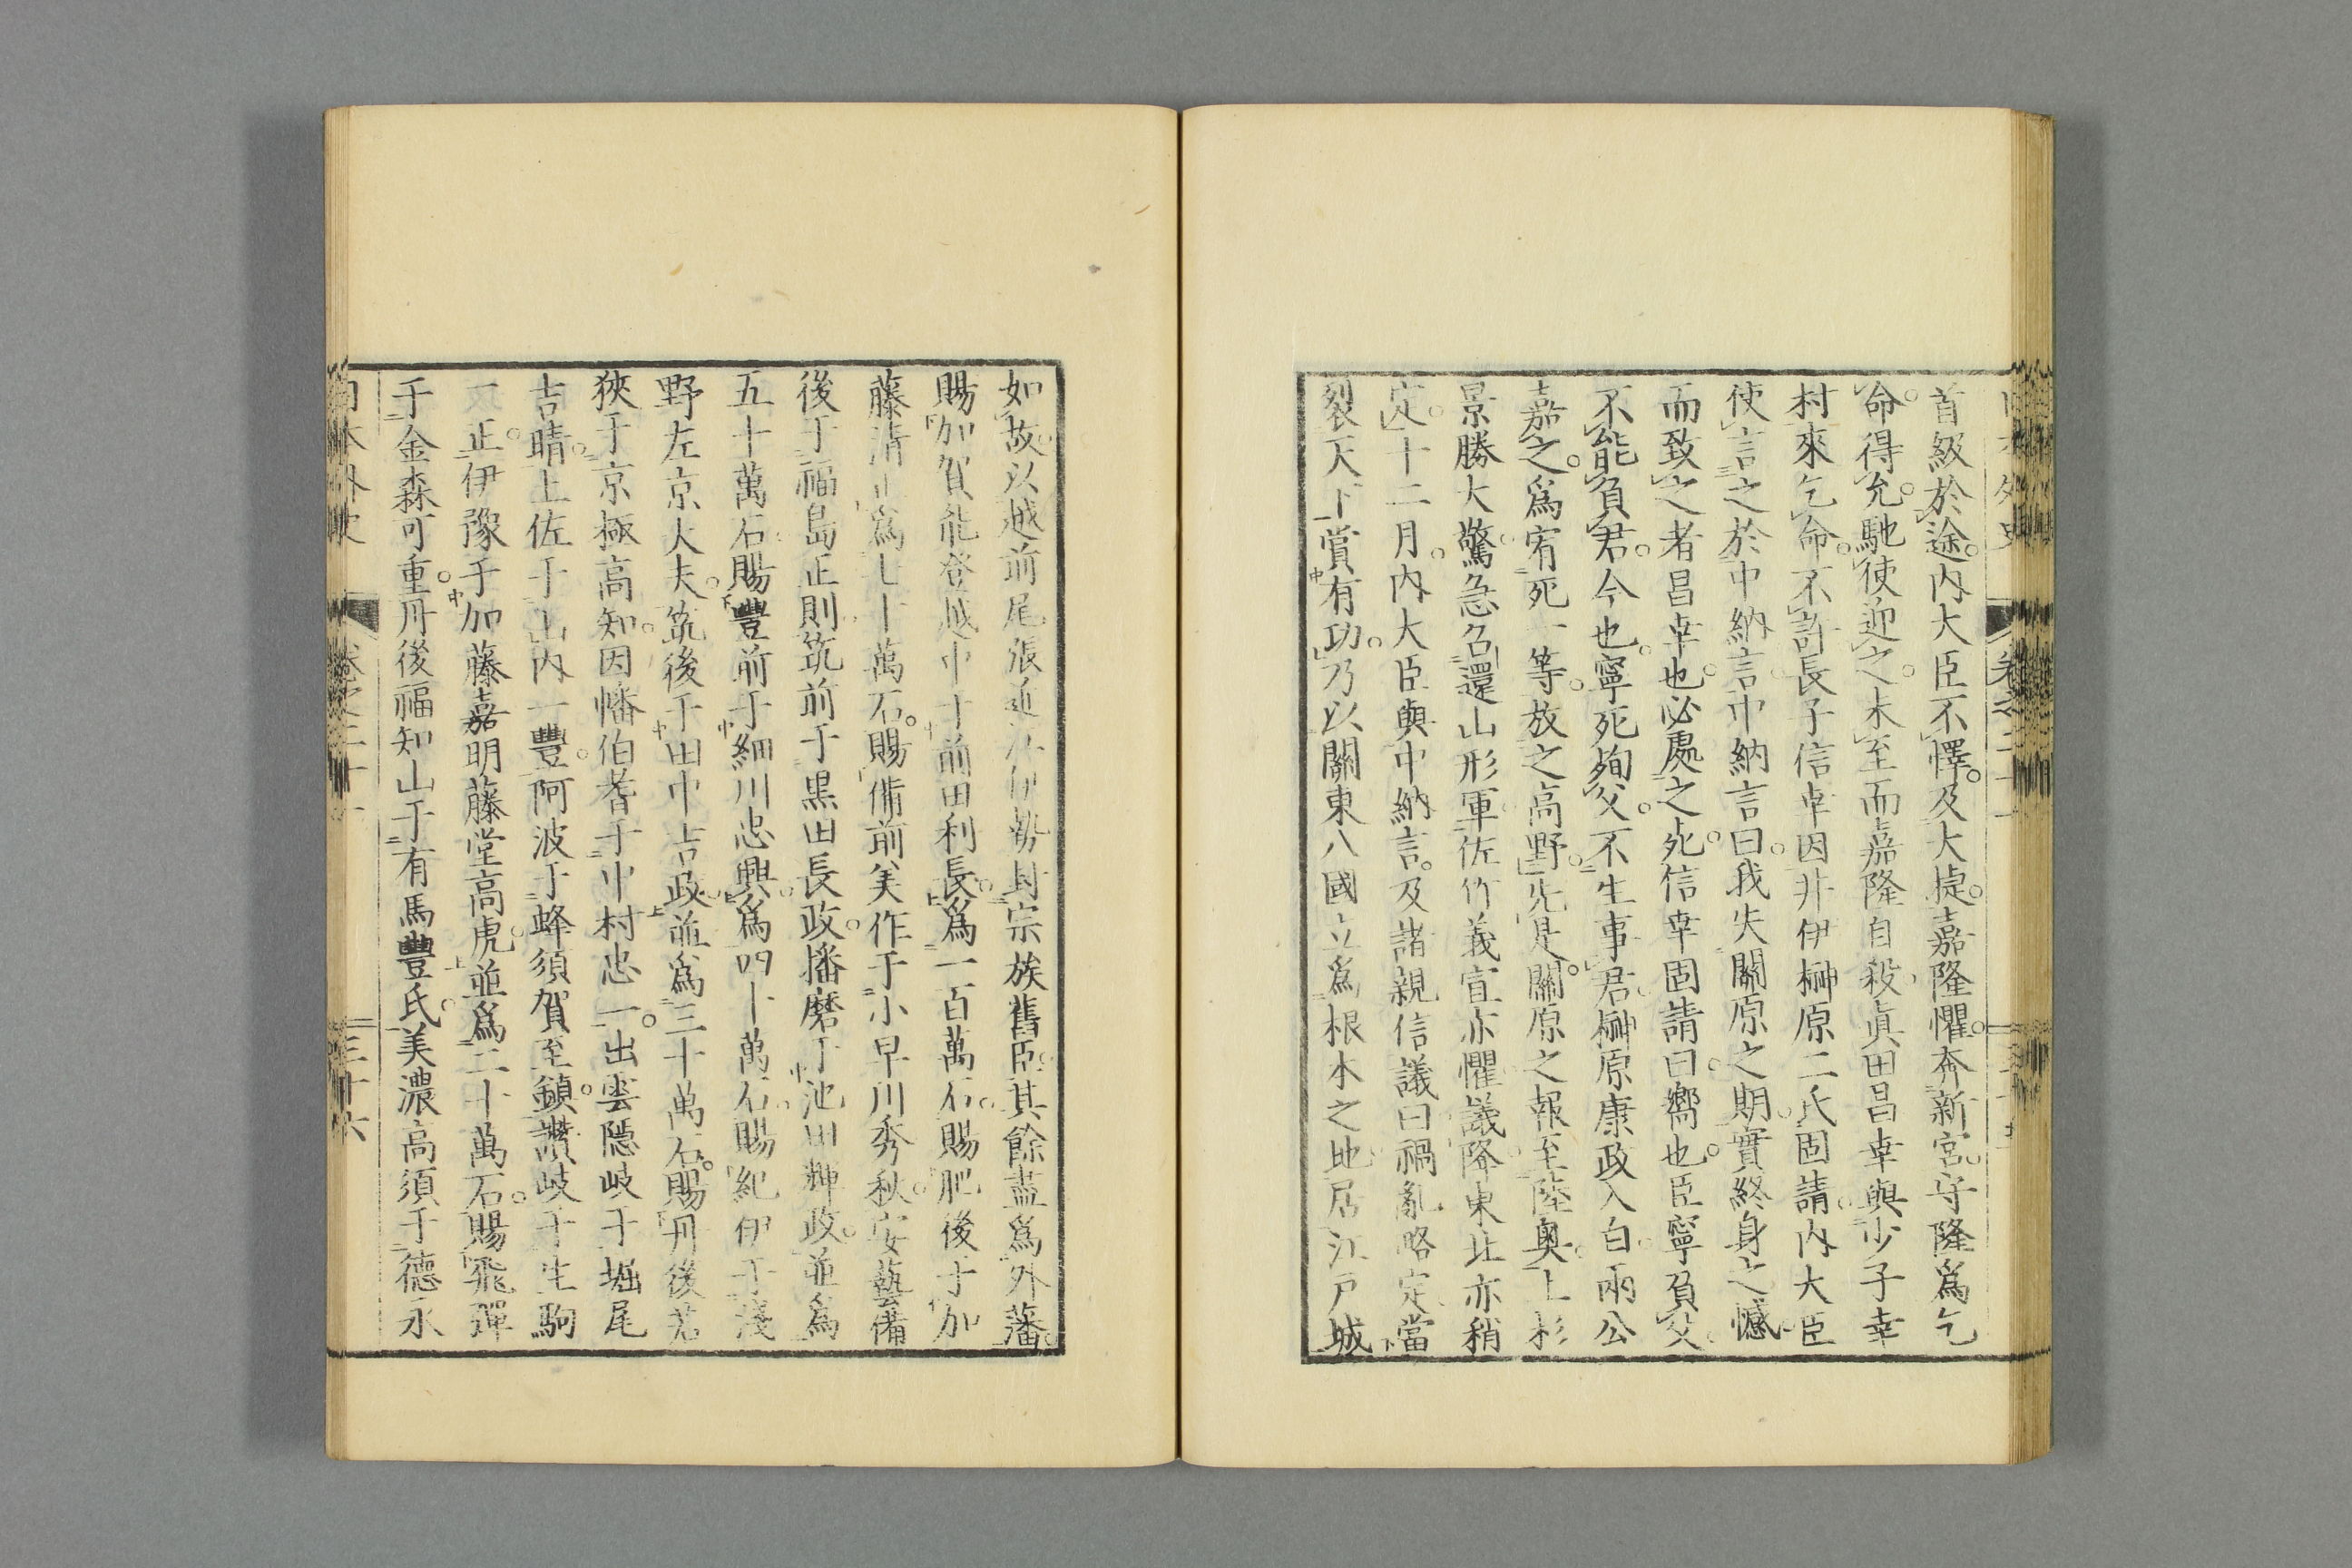 首級於途。内大臣不懌。及大捷。嘉隆懼。奔新宮。守隆爲乞
命。得允。馳使迎之。未至而嘉隆自殺。眞田昌幸與少子幸
村來乞命。不許。長子信幸因井伊榊原二氏固請。内大臣
使言之於中納言。中納言曰。我失關原之期。實終身之憾。
而致之者昌幸也。必處之死。信幸固請曰。嚮也。臣寧負父。
不能負君。今也。寧死殉父。不生事君。榊原康政入白。兩公
嘉之。爲宥死一等。放之高野。先是。關原之報至陸奧。上杉
景勝大驚。急召還山形軍。佐竹義宣亦懼。議降。東北亦稍
定。十二月。内大臣與中納言。及諸親信議曰。禍亂略定。當
裂天下賞有功。乃以關東八國立爲根本之地。居江戸城
如故。以越前尾張近江伊勢封宗族舊臣。其餘盡爲外藩。
賜加賀能登越中于前田利長。爲一百萬石。賜肥後于加
藤清正。爲七十萬石。賜備前美作于小早川秀秋。安藝備
後于福島正則。筑前于黒田長政。播磨于池田輝政。並爲
五十萬石。賜豐前于細川忠興。爲四十萬石。賜紀伊于淺
野左京大夫。筑後于田中吉政。並爲三十萬石。賜丹後若
狹于京極高知。因幡伯耆于中村忠一。出雲隱岐于堀尾
吉晴。土佐于山内一豐。阿波于蜂須賀至鎮。讃岐于生駒
正。伊豫于加藤嘉明藤堂高虎。並爲二十萬石。賜飛彈
于金森可重。丹後福知山于有馬豐氏。美濃高須于德永
日本外史 卷之二十一 三十六